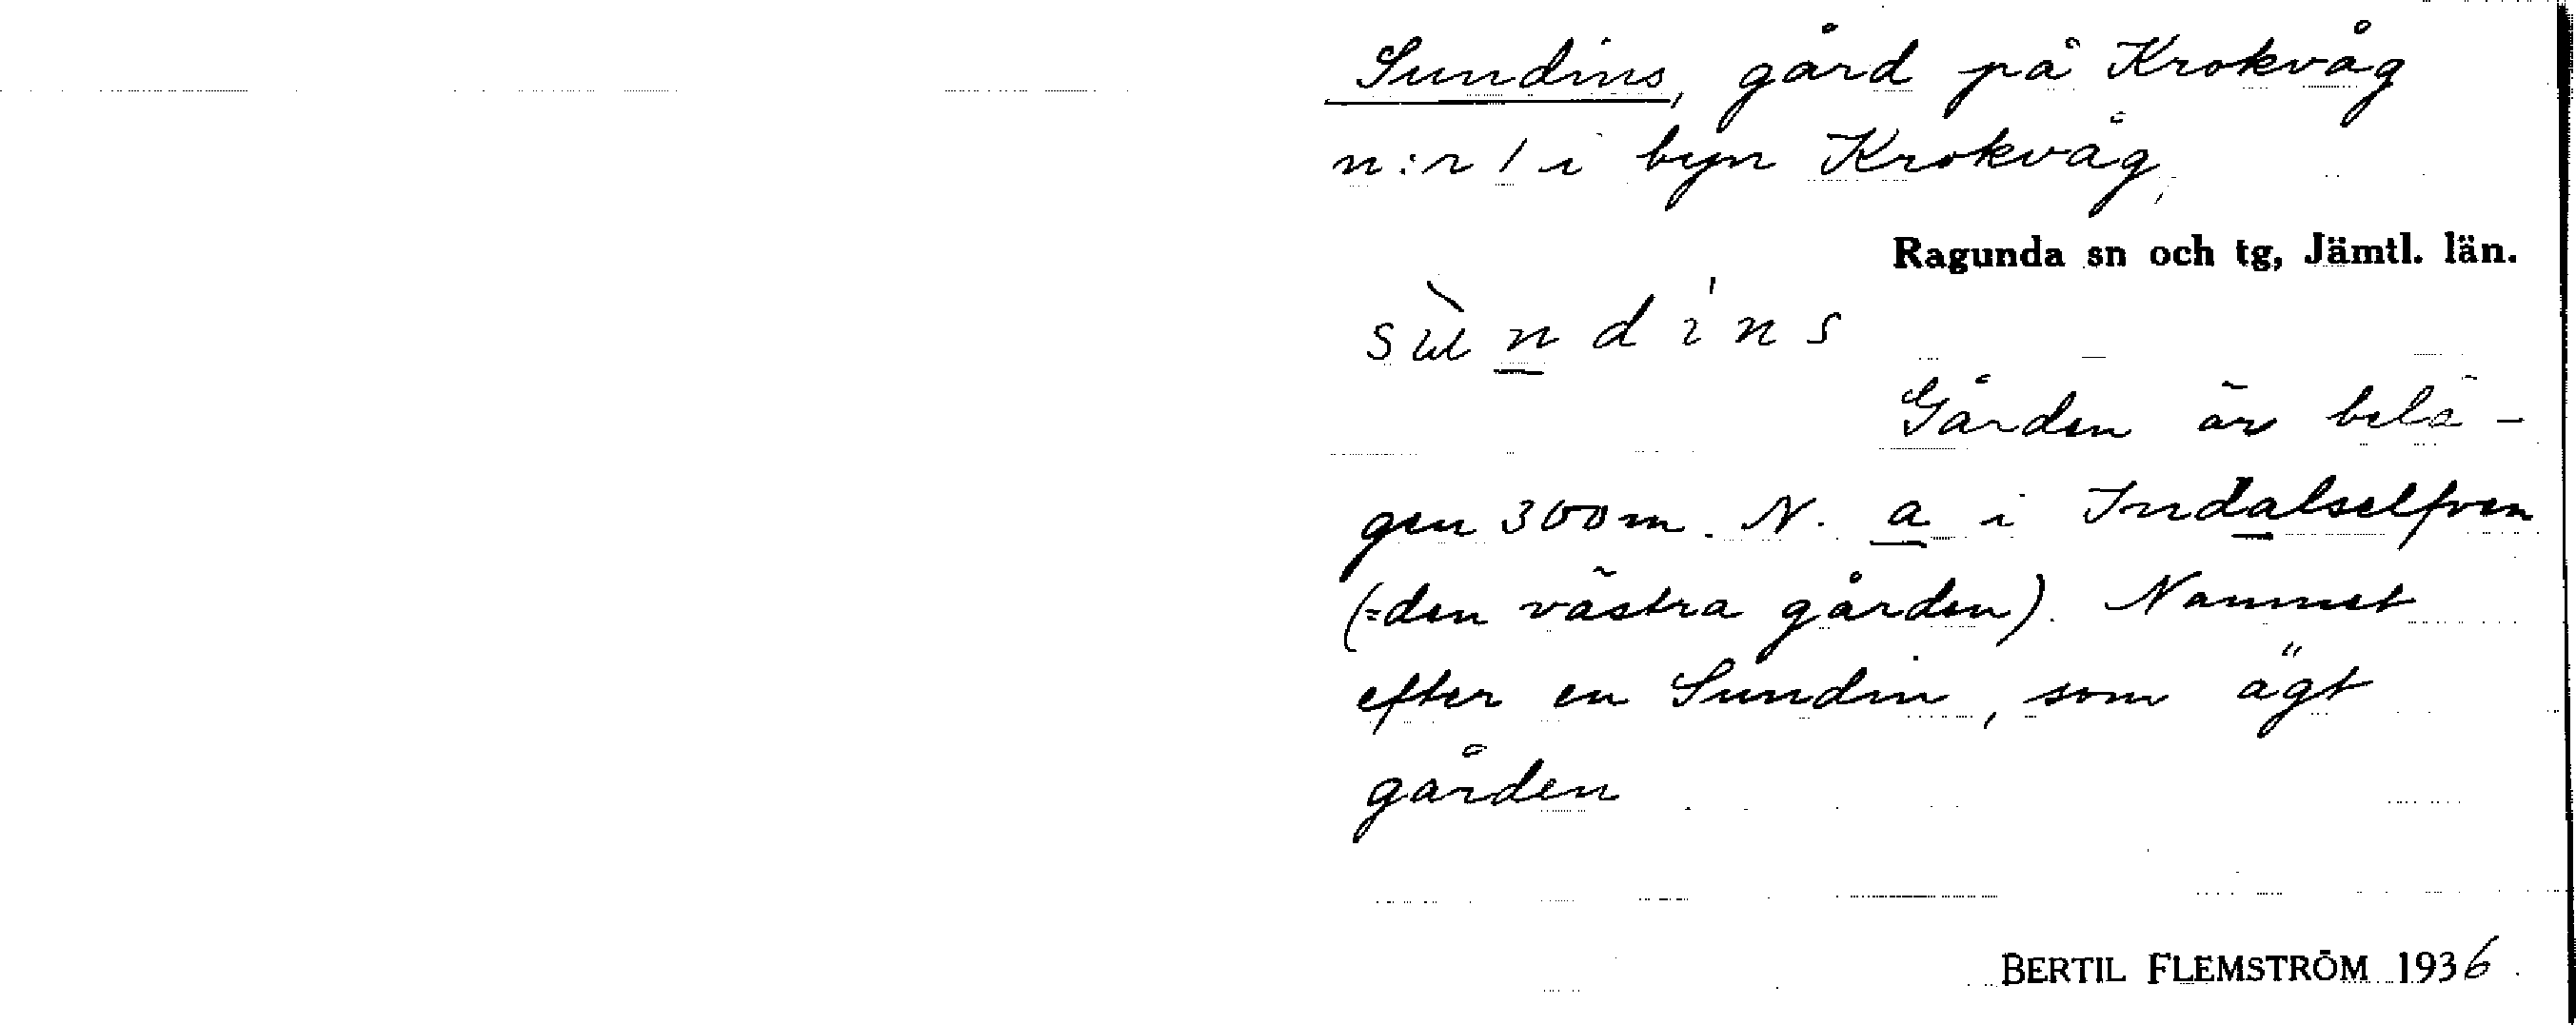 Sundins, gård på Krokvåg
n:r 1 i byn Krokvåg,
Ragunda sn och tg, Jämtl. län.
sùndins
Gården är belä-
gen 300m. N. a i Indalselfven
(=den västra gården). Namnet
efter en Sundin, som ägt
gården
BERTIL FLEMSTRÖM 1936.